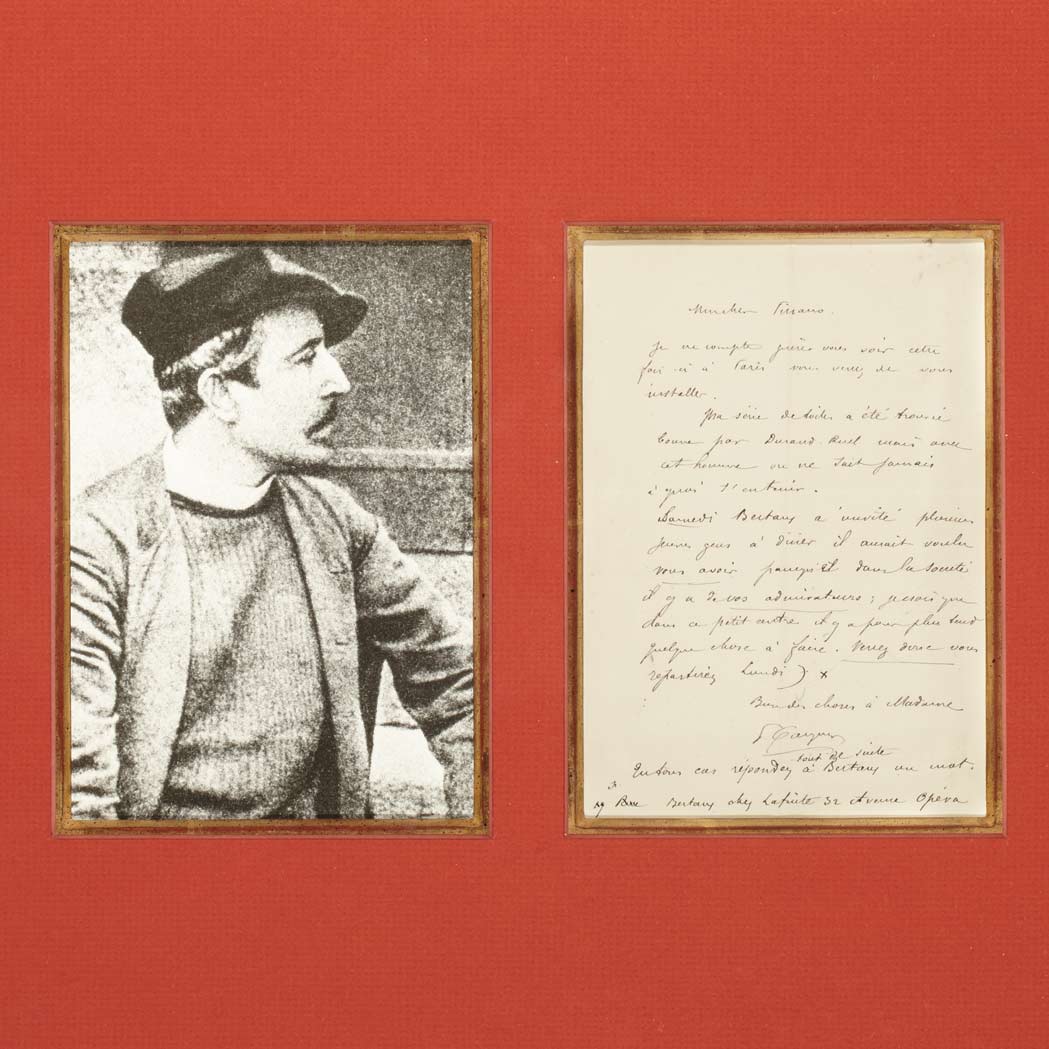 Mon cher Pissarro.
Je ne compte guère vous voir cette
fois ci à Paris vous venez de vous
installer.
Ma série de toiles a été trouvée
bonne par Durand-Ruel mais avec
cet homme on ne sait jamais
à quoi s'en tenir.
Samedi Bertaux a invité plusieurs
jeunes gens à dîner il aurait voulu
vous avoir parcequ'il dans la société
il y a de vos admirateurs ; je crois que
dans ce petit centre il y a pour plus tard
quelque chose à faire. Venez donc vous
repartirez Lundi) x
Bien des choses à Madame
P Gauguin
tout de suite
En tous cas répondez à Bertaux un mot.
Bertaux chez Lafitte 32 Avenue Opéra